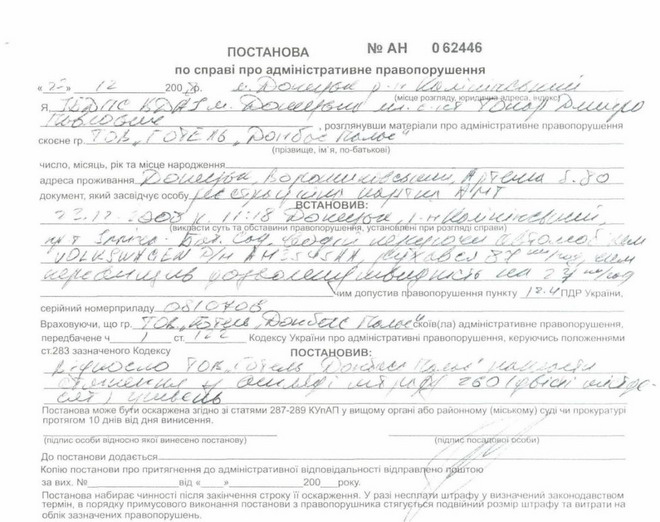 ПОСТАНОВА № АН 062446
по справі про адміністративне правопорушення
« » 12 200 р. м. Донецьк р-н Калінінський
(місце розгляду, юридична адреса, індекс)
Я, м. Донецьк
Павлович розглянувши матеріали про адміністративне правопорушення
скоєне гр. ТОВ „Готель „Донбас Палас"
(прізвище, ім'я, по-батькові)
число, місяць, рік та місце народження
адреса проживання Донецьк, Ворошиловський, Артема б. 80
документ, який засвідчує особу картка АМТ
ВСТАНОВИВ:
12. 2008 р. 11:18 Донецьк, р-н Калінінський,
(викласти суть та обставини правопорушення, установлені при розгляді справи)
Бот. Сад, водій керуючи автомобілем
VOLKSWAGEN Р/Н рухався км/год, чим
перевищив дозволену швидкість на км/год
чим допустив правопорушення пункту 12.4 ПДР України,
серійний номерприладу 0810708
Враховуючи, що гр. ТОВ „Готель „Донбас Палас" скоїв(ла) адміністративне правопорушення,
передбачене ч 1 ст. 122 Кодексу України про адміністративні правопорушення, керуючись положеннями
ст.283 зазначеного Кодексу
ПОСТАНОВИВ:
Відносно ТОВ „Готель „Донбас Палас" накласти
стягнення у вигляді штрафу 260 (двісті шістде-
сят) гривень
Постанова може бути оскаржена згідно зі статями 287-289 КУпАП у вищому органі або районному (міському) суді чи прокуратурі
протягом 10 днів від дня винесення.
(підпис особи відносно якої винесено постанову) (підпис посадової особи)
До постанови додається
Копію постанови про притягнення до адміністративної відповідальності відправлено поштою
за вих. № від « » 200 року.
Постанова набирає чинності після закінчення строку її оскарження. У разі несплати штрафу у визначений законодавством
термін, в порядку примусового виконання постанови з правопорушника стягується подвійний розмір штрафу та витрати на
облік зазначених правопорушень.